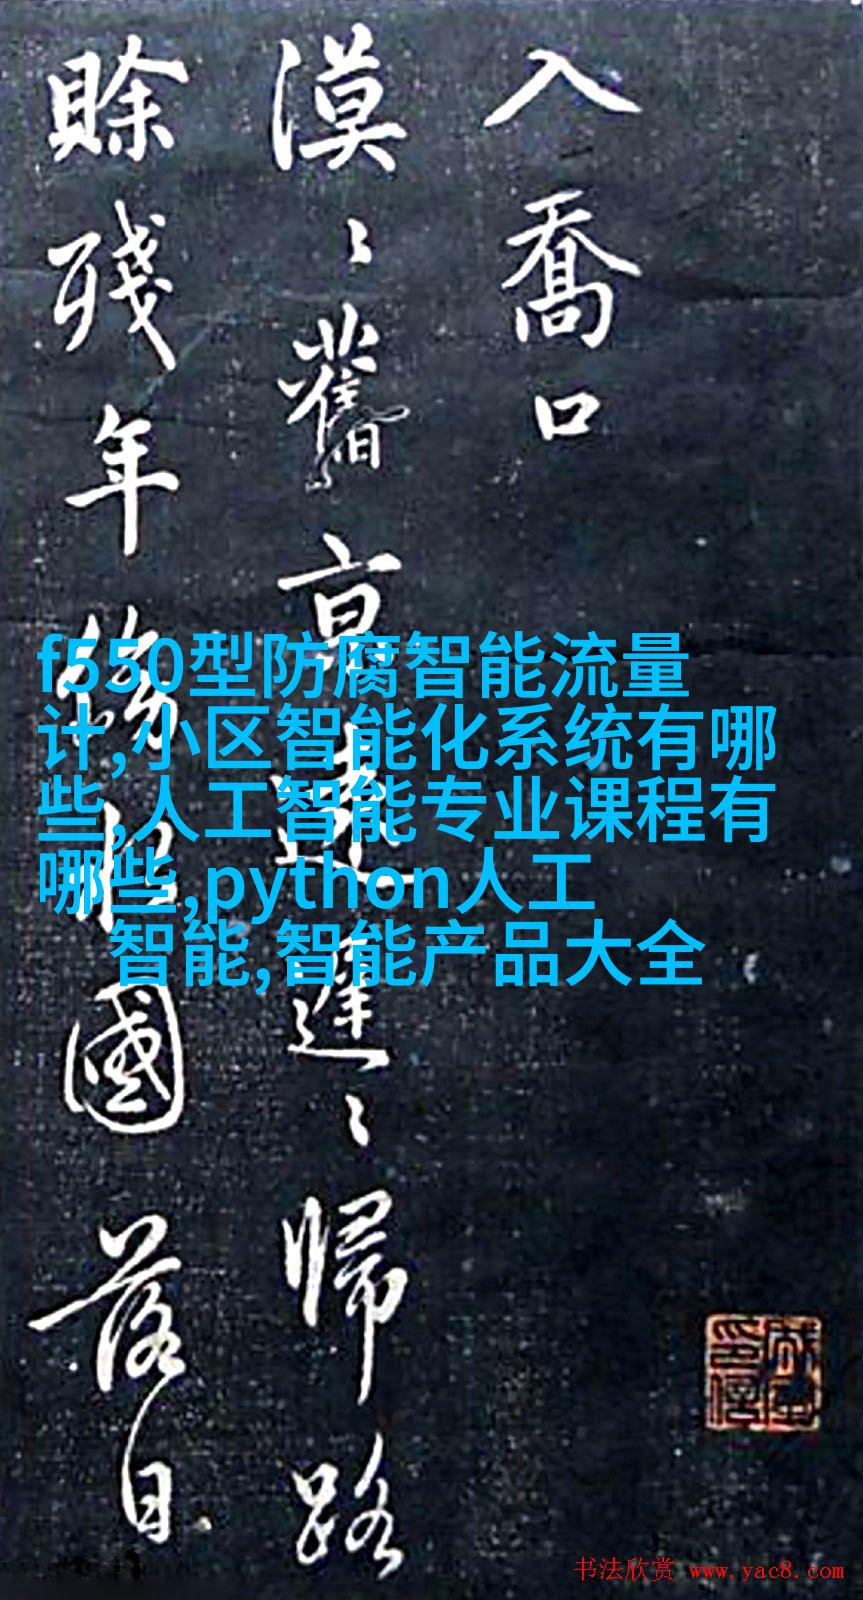 入喬口
漠〻舊亰遠遲〻歸路
賒殘年傍水國落日
f550型防腐智能流量
计,小区智能化系统有哪
些,人工智能专业课程有
哪些,python人工
智能,智能产品大全
书法欣赏 www.yac8.com